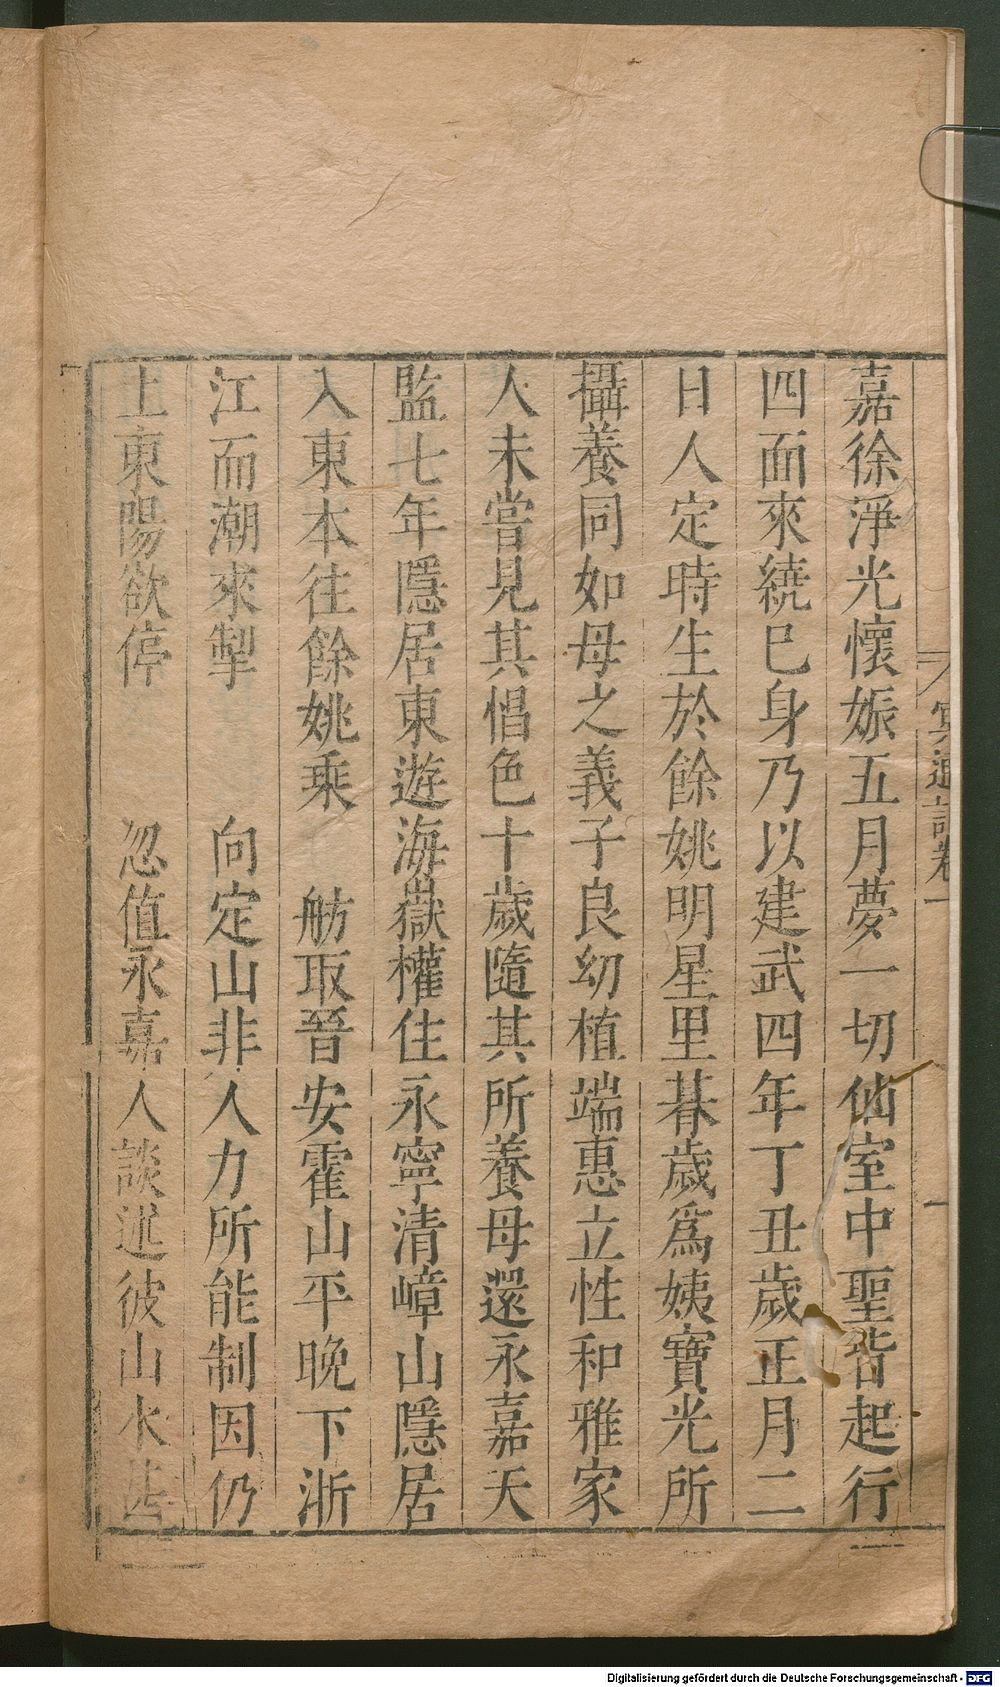 嘉徐淨光懷娠五月夢一切仙室中聖皆起行
四面來繞巳身乃以建武四年丁丑歲正月二
日人定時生於餘姚明星里朞歲爲姨寶光所
攝養同如母之義子良幼植端惠立性和雅家
人未嘗見其愠色十歲隨其所養母還永嘉天
監七年隱居東遊海嶽權住永寧清嶂山隱居
入東本往餘姚乘 舫取晉安霍山平晚下浙
江而潮來掣 向定山非人力所能制因仍
上東陽欲停 忽值永嘉人談述彼山水甚
冥通記卷一
一
Digitalisierung gefördert durch die Deutsche Forschungsgemeinschaft - DFG